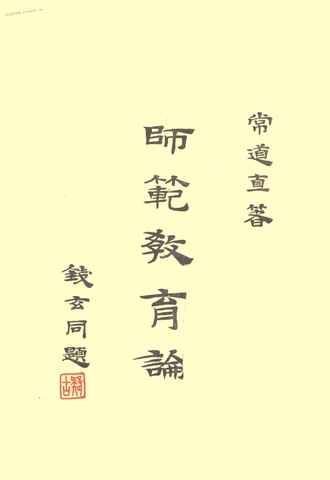 常道直著
師範教育論
錢玄同題
疑古